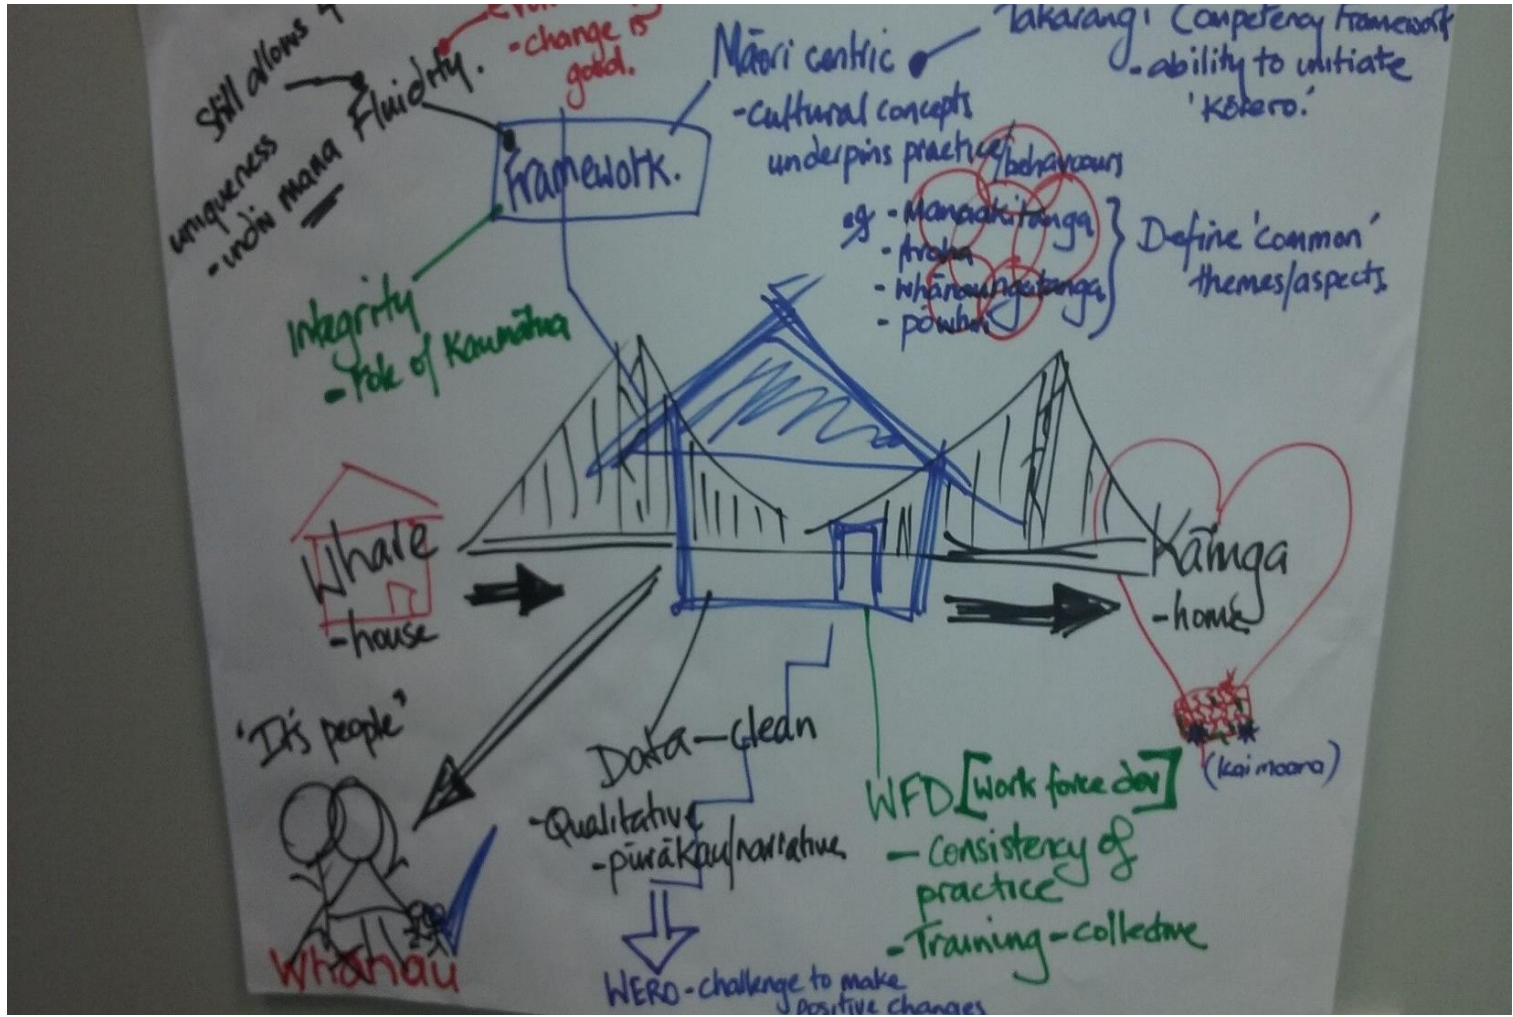 Still allows 4
uniqueness
- indiv mana
Fluidity.
- change is
good.
Framework.
Integrity
- role of Kaumātua
Māori centric
- cultural concepts
underpins practice/behaviours
eg - Manaakitanga
- Aroha
- whānaungatanga
- pōwhiri
Define 'common'
themes/aspects.
Takarangi Competency Framework
- ability to initiate
'Kōrero.'
Whare
- house
Kāinga
- home
(Kai moana)
'It's people'
Whānau
Data - clean
- Qualitative
- pūrākau/narrative
WERO - challenge to make
positive changes
WFD [Work force dev]
- Consistency of
practice
- Training - collective